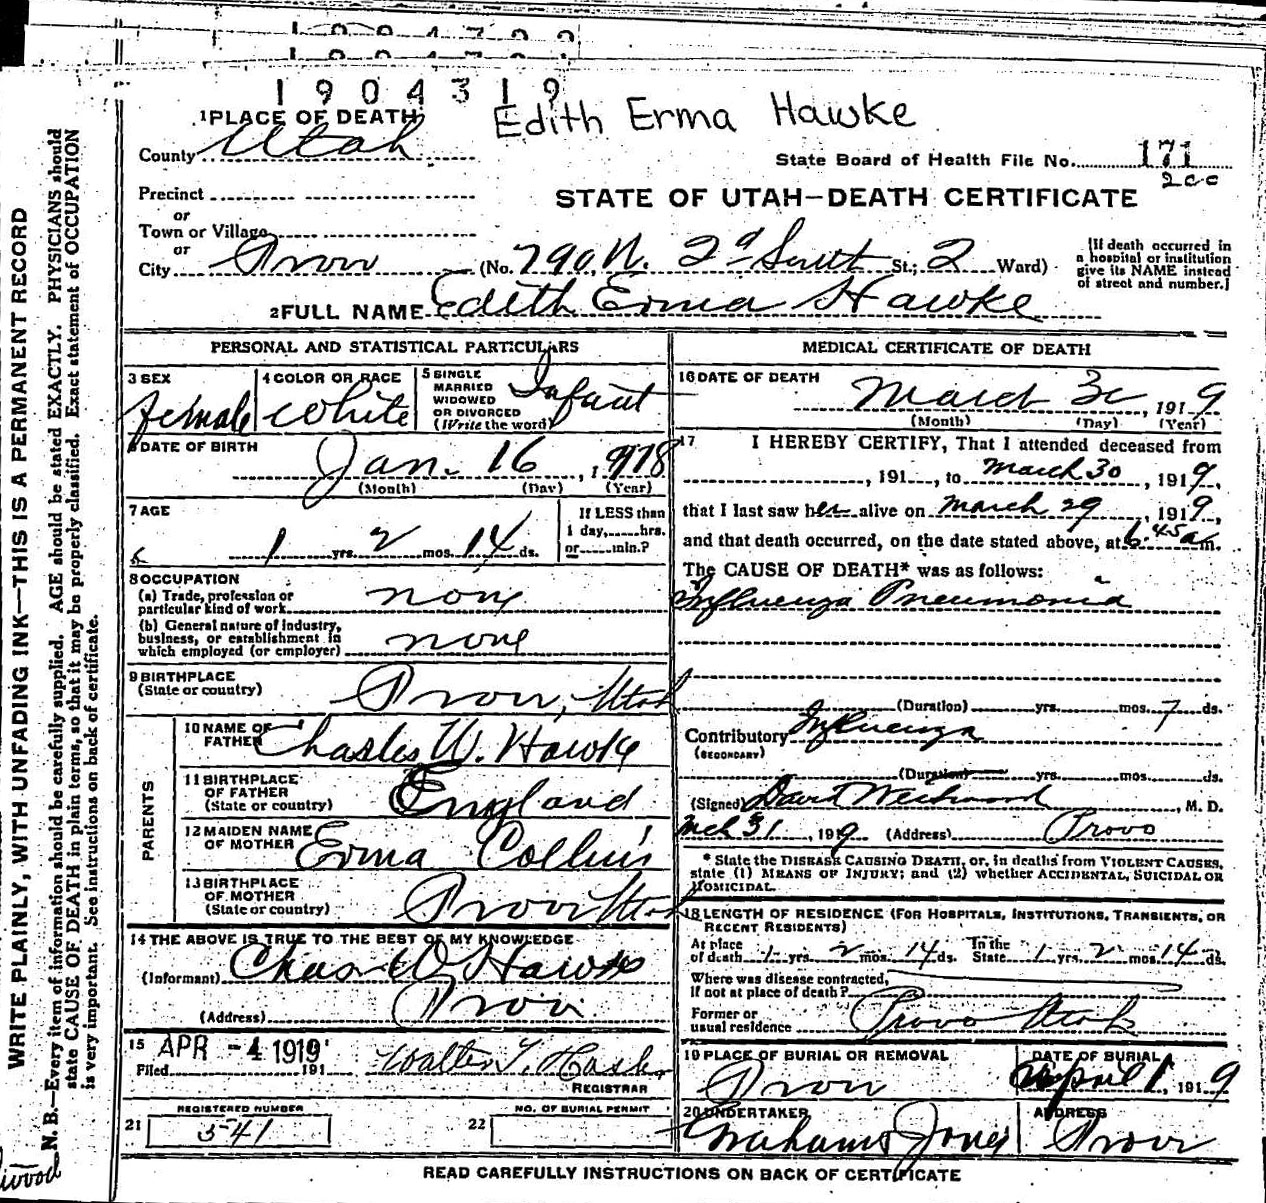 1904319
Edith Erma Hawke
1 PLACE OF DEATH
County Utah
State Board of Health File No. 171
200
Precinct
or
Town or Village
or
STATE OF UTAH—DEATH CERTIFICATE
City Provo (No. 790 N. 2d South St.; 2 Ward)
[If death occurred in
a hospital or institution
give its NAME instead
of street and number.]
2 FULL NAME Edith Erma Hawke
PERSONAL AND STATISTICAL PARTICULARS
3 SEX
female
4 COLOR OR RACE
White
5 SINGLE
MARRIED
WIDOWED
OR DIVORCED
(Write the word)
Infant
6 DATE OF BIRTH
Jan. 16, 1918
(Month) (Day) (Year)
7 AGE
1 yrs. 2 mos. 14 ds.
If LESS than
1 day, hrs.
or min.?
8 OCCUPATION
(a) Trade, profession or
particular kind of work none
(b) General nature of industry,
business, or establishment in
which employed (or employer) none
9 BIRTHPLACE
(State or country) Provo, Utah
PARENTS
10 NAME OF
FATHER Charles W. Hawke
11 BIRTHPLACE
OF FATHER
(State or country) England
12 MAIDEN NAME
OF MOTHER Erma Collins
13 BIRTHPLACE
OF MOTHER
(State or country) Provo Utah
14 THE ABOVE IS TRUE TO THE BEST OF MY KNOWLEDGE
(Informant) Chas W Hawke
(Address) Provo
15 APR -4 1919
Filed 191 Walter T. Hasler
REGISTRAR
REGISTERED NUMBER
21 541
NO. OF BURIAL PERMIT
22
MEDICAL CERTIFICATE OF DEATH
16 DATE OF DEATH
March 30, 1919
(Month) (Day) (Year)
17 I HEREBY CERTIFY, That I attended deceased from
, 191 , to March 30, 1919,
that I last saw her alive on March 29, 1919,
and that death occurred, on the date stated above, at 6:45 a m.
The CAUSE OF DEATH* was as follows:
Influenza Pneumonia
(Duration) yrs. mos. 7 ds.
Contributory Influenza
(SECONDARY)
(Duration) yrs. mos. ds.
(Signed) David Westwood, M. D.
Mch 31, 1919 (Address) Provo
* State the DISEASE CAUSING DEATH, or, in deaths from VIOLENT CAUSES,
state (1) MEANS OF INJURY; and (2) whether ACCIDENTAL, SUICIDAL OR
HOMICIDAL.
18 LENGTH OF RESIDENCE (FOR HOSPITALS, INSTITUTIONS, TRANSIENTS, OR
RECENT RESIDENTS)
At place In the
of death 1 yrs. 2 mos. 14 ds. State 1 yrs. 2 mos. 14 ds.
Where was disease contracted,
If not at place of death?
Former or
usual residence Provo Utah
19 PLACE OF BURIAL OR REMOVAL
Provo
DATE OF BURIAL
April 1, 1919
20 UNDERTAKER
Graham & Jones
ADDRESS
Provo
READ CAREFULLY INSTRUCTIONS ON BACK OF CERTIFICATE
WRITE PLAINLY, WITH UNFADING INK—THIS IS A PERMANENT RECORD
N. B.—Every item of information should be carefully supplied. AGE should be stated EXACTLY. PHYSICIANS should
state CAUSE OF DEATH in plain terms, so that it may be properly classified. Exact statement of OCCUPATION
is very important. See instructions on back of certificate.